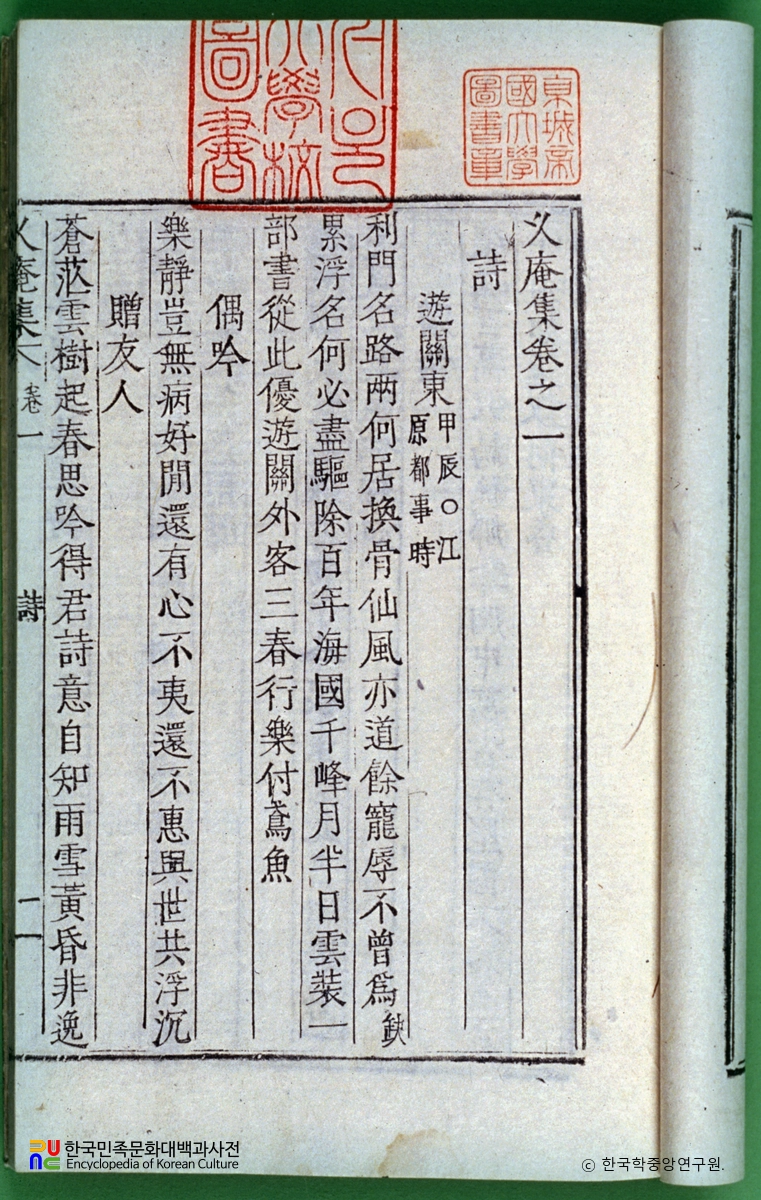 京城帝
國大學
圖書章
서울
大學校
圖書
久庵集卷之一
詩
遊關東 甲辰○江
原都事時
利門名路兩何居換骨仙風亦道餘寵辱不曾爲缺
累浮名何必盡驅除百年海國千峰月半日雲裝一
部書從此優遊關外客三春行樂付鳶魚
偶吟
樂靜豈無病好閒還有心不夷還不惠與世共浮沉
贈友人
蒼茫雲樹起春思吟得君詩意自知雨雪黃昏非逸
久庵集 卷一 詩 一
한국민족문화대백과사전
Encyclopedia of Korean Culture
© 한국학중앙연구원.